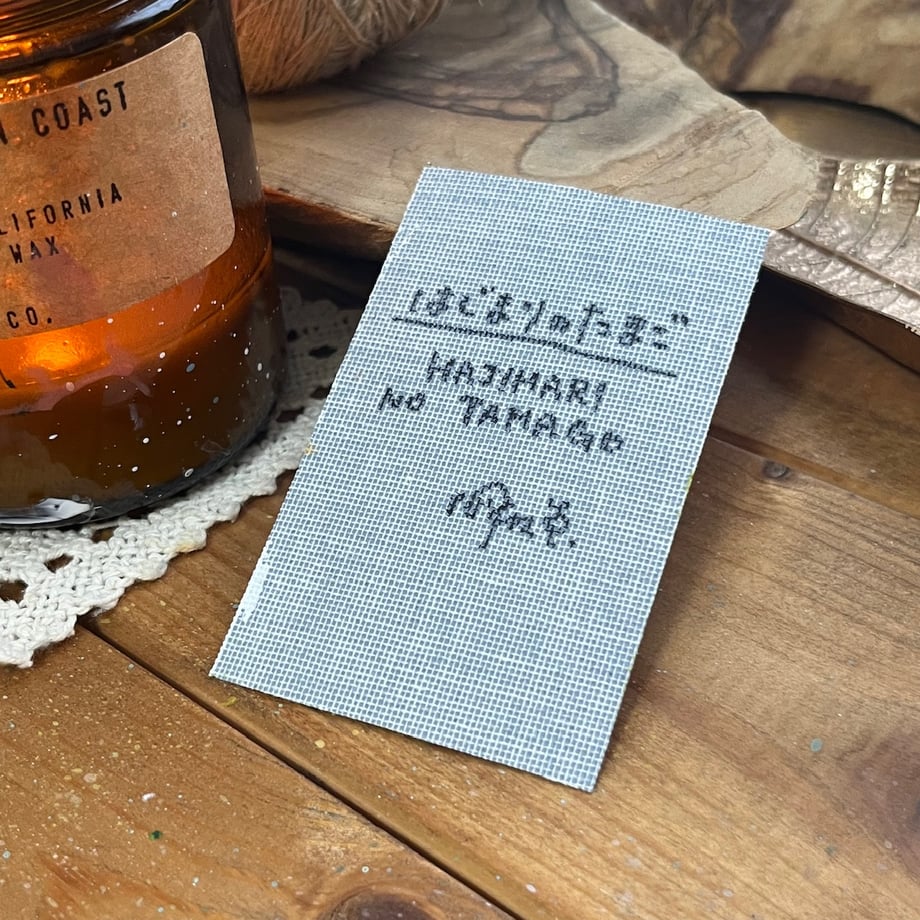 COAST
WAX
CO.
はじまりのたまご
HAJIMARI
NO TAMAGO